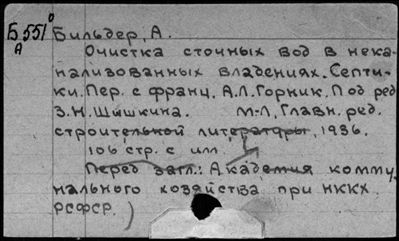 Б 551⁰ Бильдер, А.
А
Очистка сточных вод в нека-
нализованных владениях. Септи-
ки. Пер. с франц. А.Л. Горник. Под ред
З.Н. Шишкина. М-Л, Главн. ред.
строительной литературы, 1936.
106 стр. с илл.
Перед загл.: Академия комму-
нального хозяйства при НККХ
РСФСР.)